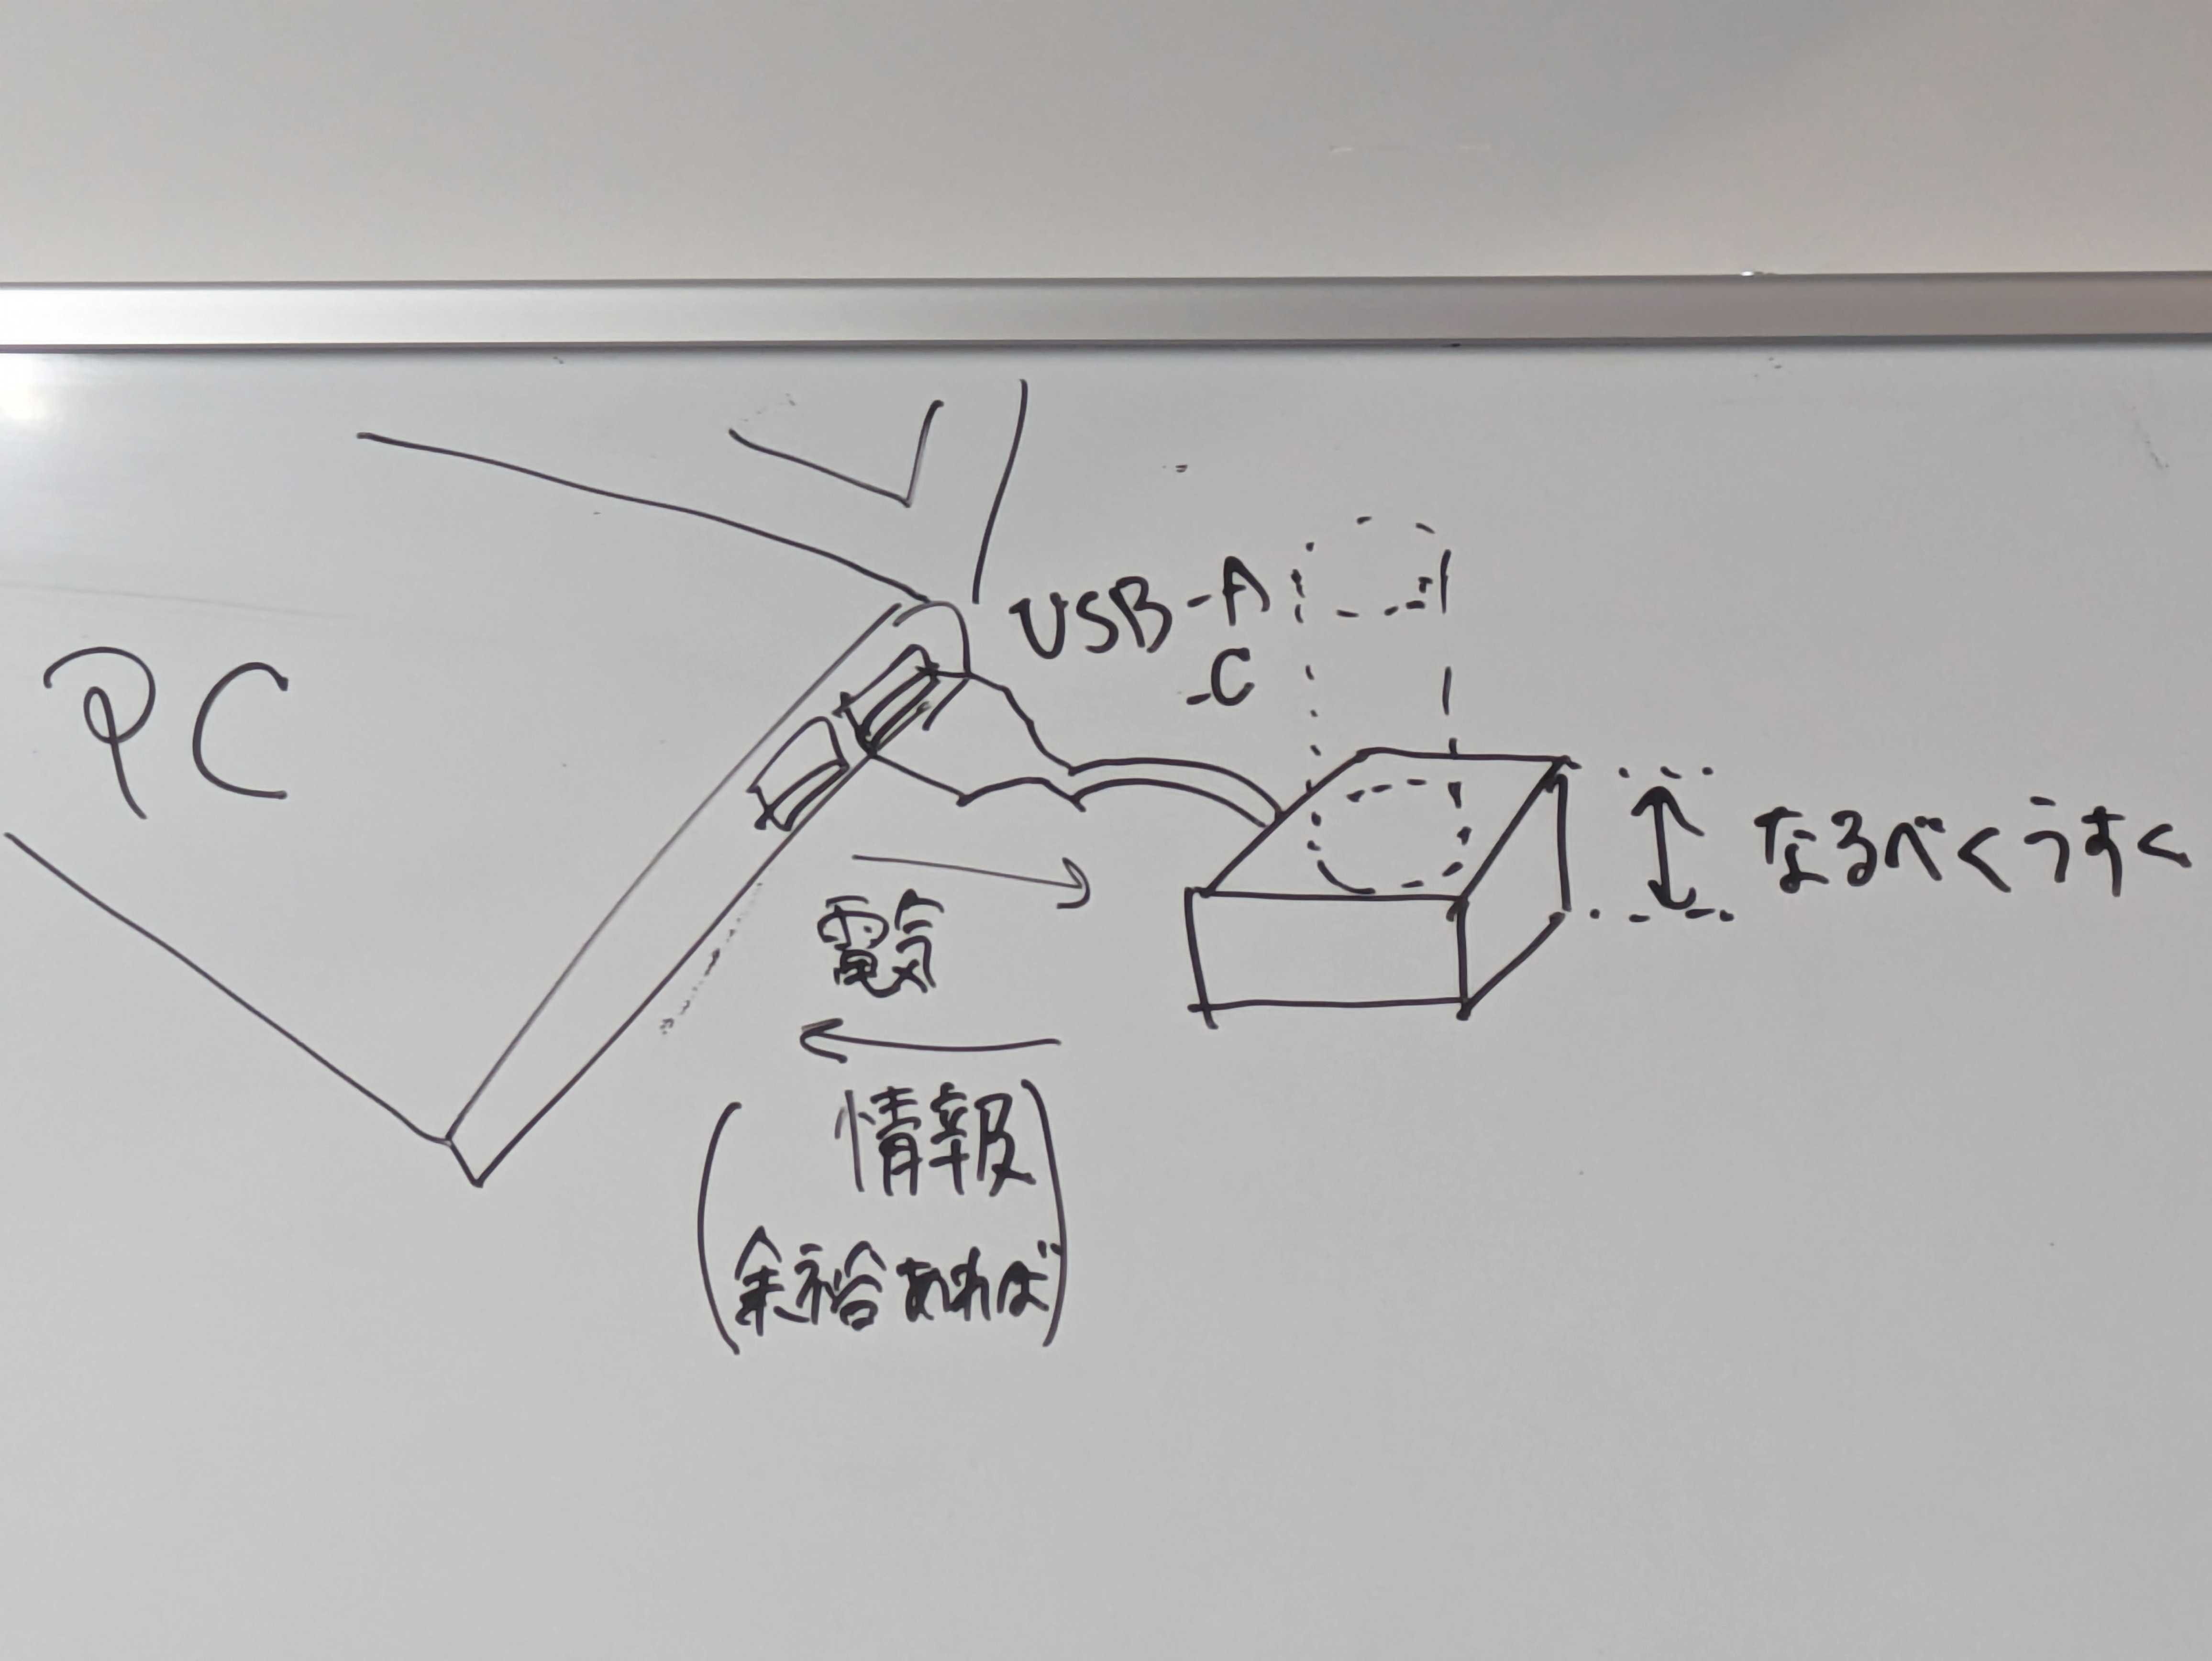 PC
USB-A
-C
なるべくうすく
電気
情報
余裕あれば